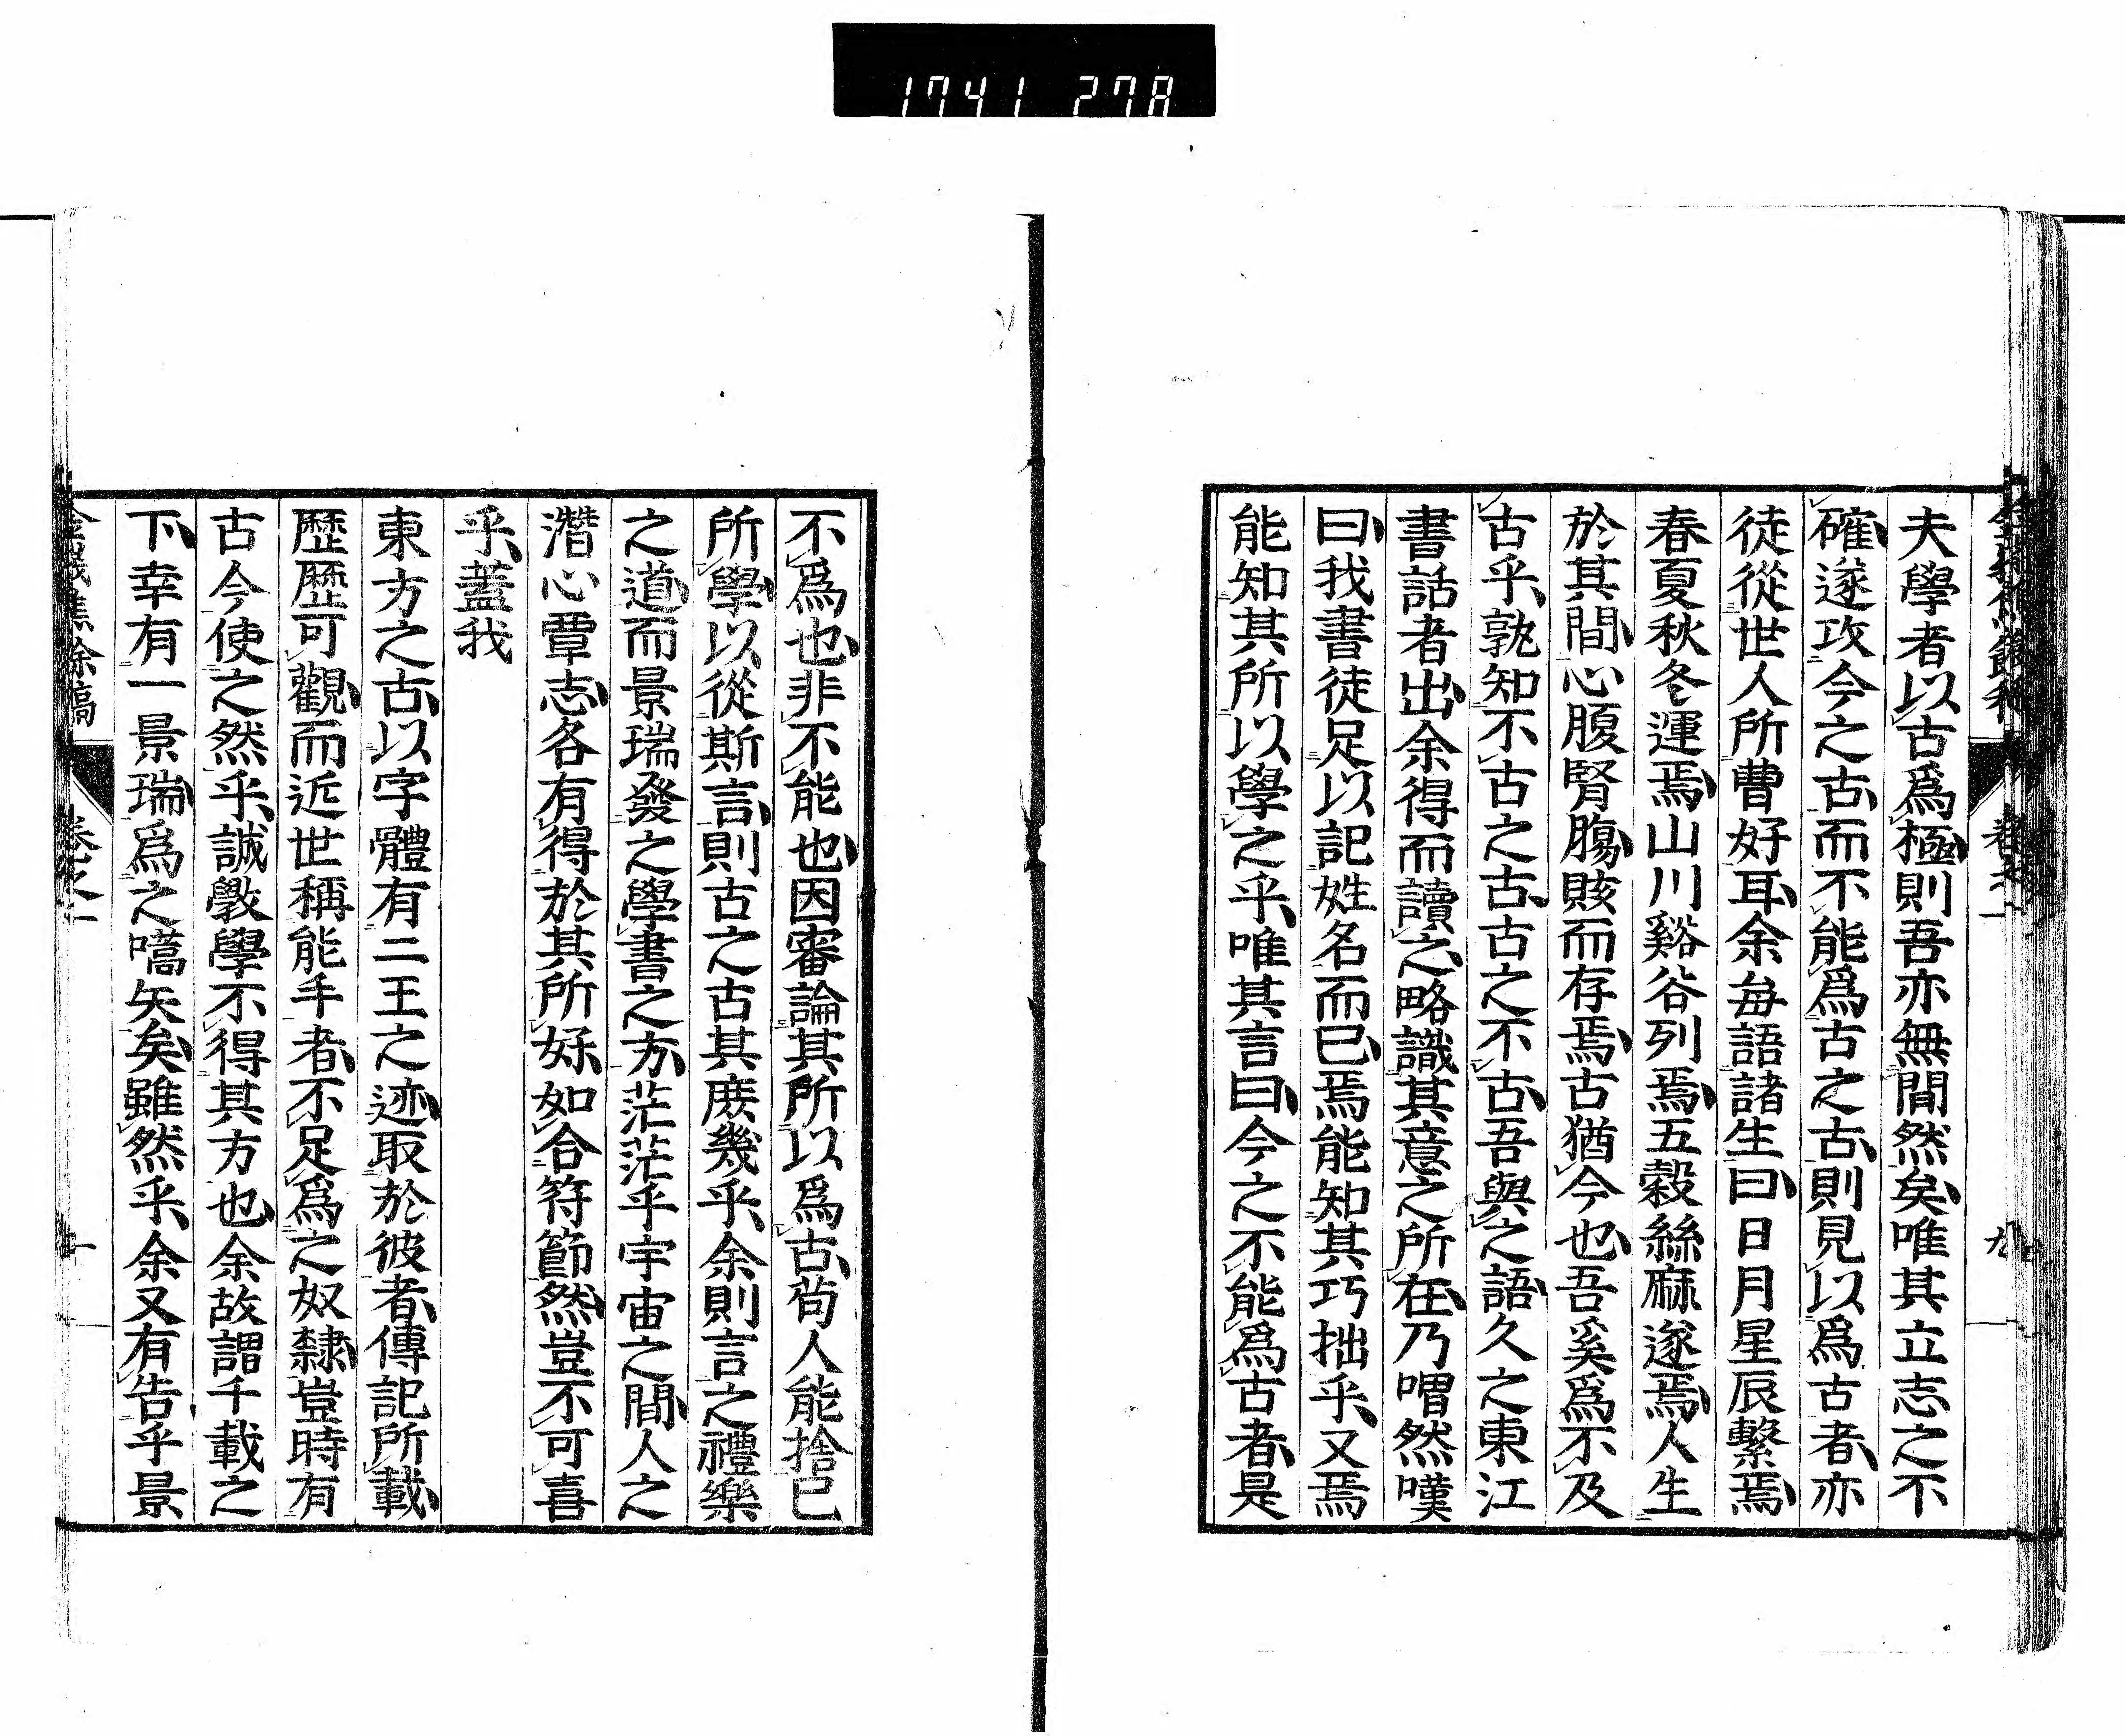 1741 278
夫學者以古爲極則吾亦無間然矣唯其立志之不
確遂攻今之古而不能爲古之古則見以爲古者亦
徒從世人所曹好耳余每語諸生曰日月星辰繫焉
春夏秋冬運焉山川谿谷列焉五穀絲麻遂焉人生
於其間心腹腎膓賅而存焉古猶今也吾奚爲不及
古乎孰知不古之古古之不古吾與之語久之東江
書話者出余得而讀之略識其意之所在乃喟然嘆
曰我書徒足以記姓名而已焉能知其巧拙乎又焉
能知其所以學之乎唯其言曰今之不能爲古者是
不爲也非不能也因審論其所以爲古苟人能捨己
所學以從斯言則古之古其庶幾乎余則言之禮樂
之道而景瑞發之學書之方茫茫乎宇宙之間人之
潛心覃志各有得於其所好如合符節然豈不可喜
乎蓋我
東方之古以字體有二王之迹取於彼者傳記所載
歷歷可觀而近世稱能手者不足爲之奴隸豈時有
古今使之然乎誠斅學不得其方也余故謂千載之
下幸有一景瑞爲之嚆矢矣雖然乎余又有告乎景
焦餘稿
卷之一